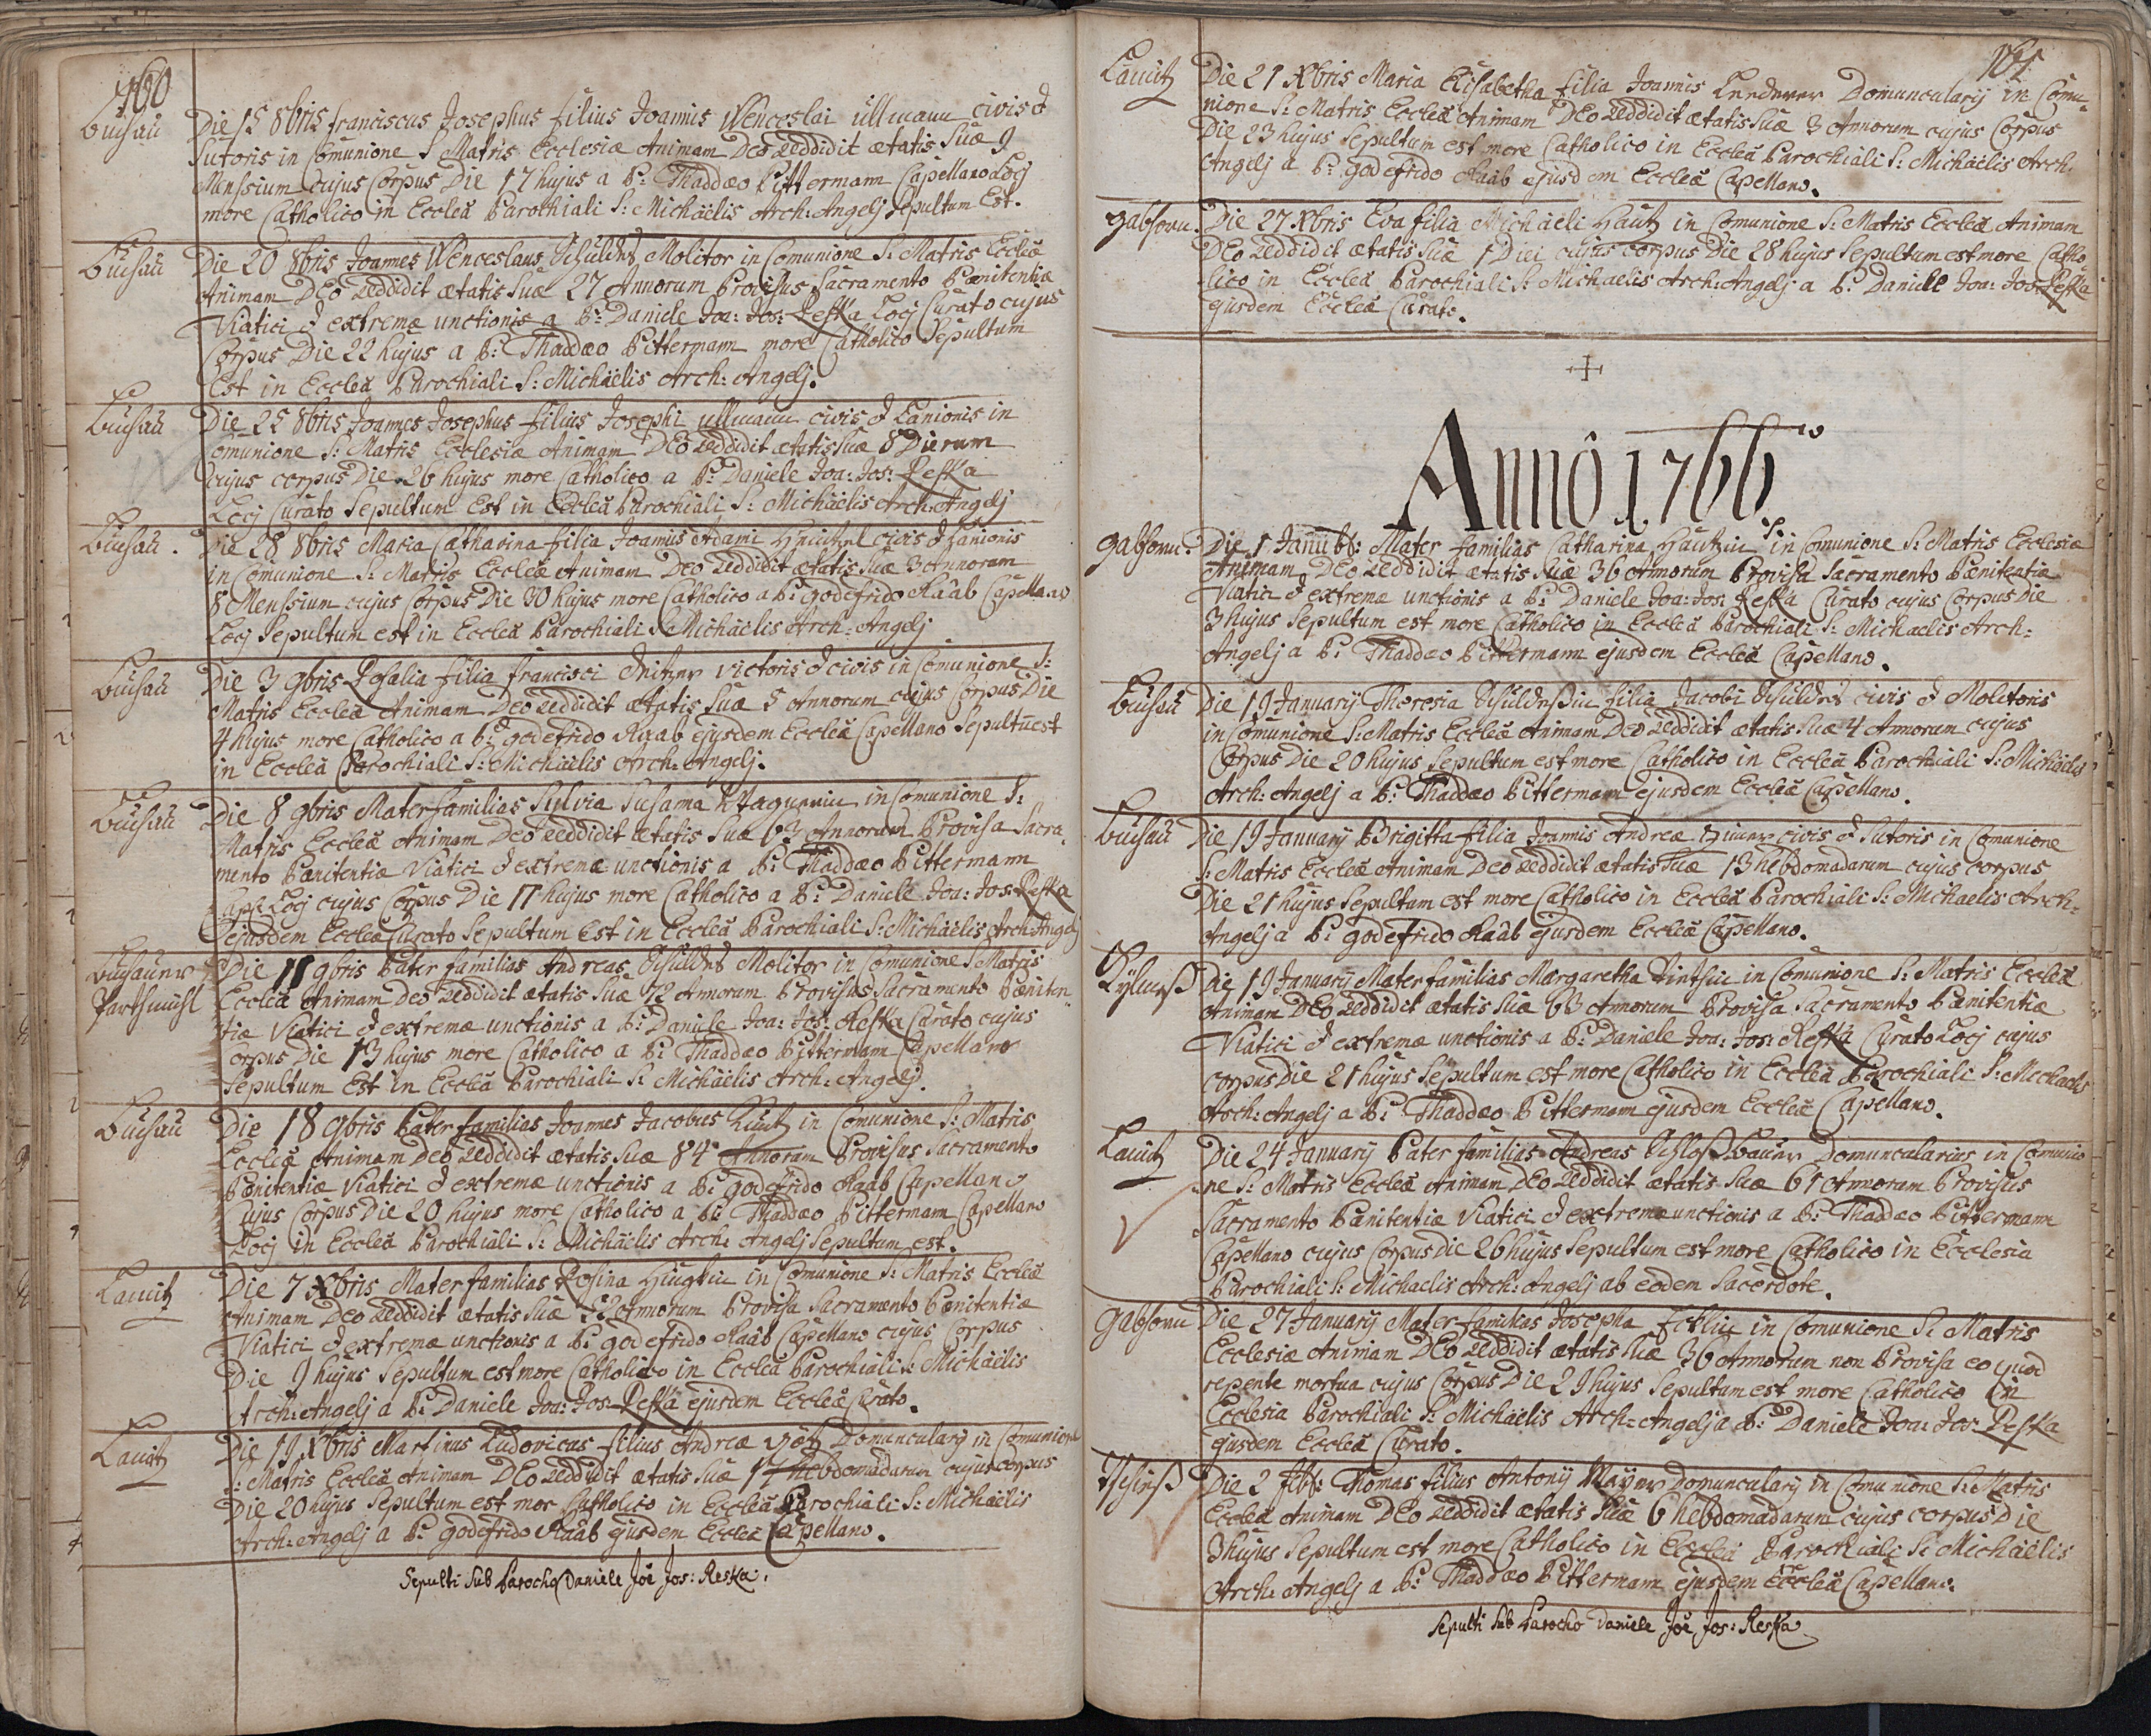 160
Buchau
Die 15 8bris Franciscus Josephus filius Joannis Wenceslai Ullmann civis &
Sutoris in Comunione S Matris Ecclesiæ Animam Deo reddidit ætatis Suæ 9
Menssium cujus Corpus Die 17 hujus a P: Thaddæo Pittermann Capellano Locj
more Catholico in Eccleâ Parochiali S: Michäelis Arch: Angelj Sepultum Est.
Buchau
Die 20 8bris Joannes Wenceslaus Schuldes Molitor in Comunione S: Matris Eccleæ
Animam DEo reddidit ætatis Suæ 27 Annorum Provisus Sacramento Pœnitentiæ
Viatici & extremæ unctionis a P: Daniele Joa: Jos: Reska Locj Curato cujus
Corpus Die 22 hujus a P: Thaddæo Pittermann more Catholico Sepultum
Est in Eccleâ Parochiali S: Michäelis Arch: Angelj.
Buchau
Die 25 8bris Joannes Josephus filius Josephi Ullmann civis & Lanionis in
Comunione S: Matris Ecclesiæ Animam DEo reddidit ætatis Suæ 8 Dierum
cujus corpus Die 26 hujus more Catholico a P: Daniele Joa: Jos: Reska
Locj Curato Sepultum Est in Eccleâ Parochiali S: Michäelis Arch: Angelj
Buchau.
Die 28 8bris Maria Catharina filia Joannis Adami civis & Lanionis
in Comunione S: Matris Eccleæ Animam Deo reddidit ætatis Suæ 3 Annorum
8 Menssium cujus Corpus Die 30 hujus more Catholico a P: Godefrido Raab Capellano
Locj Sepultum est in Eccleâ Parochiali S: Michäelis Arch: Angelj
Buchau
Die 3 9bris Rosalia filia Francisci victoris & civis in Comunione S:
Matris Eccleæ Animam Deo reddidit ætatis Suæ 5 Annorum cujus Corpus Die
4 hujus more Catholico a P: Godefrido Raab ejusdem Eccleæ Capellano Sepultū est
in Eccleâ Parochiali S: Michäelis Arch: Angelj.
Buchau
Die 8 9bris Mater familias Sylvia Susanna Wagnerin in Comunione S:
Matris Eccleæ Animam Deo reddidit ætatis Suæ 63 Annorum Provisa Sacra-
mento Pœnitentiæ Viatici & extremæ unctionis a P: Thaddæo Pittermann
Cap: Locj cujus Corpus Die 11 hujus more Catholico a P: Daniele Joa: Jos: Reska
ejusdem Eccleæ Curato Sepultum Est in Eccleâ Parochiali S: Michäelis Arch: Angelj
Buchauer
Partsmühl
Die 11 9bris Pater familias Andreas Schuldes Molitor in Comunione S Matris
Eccleæ Animam Deo reddidit ætatis Suæ 72 Annorum Provisus Sacramento Pœniten
tiæ Viatici & extremæ unctionis a P: Daniele Joa: Jos: Reska Curato cujus
Corpus Die 13 hujus more Catholico a P: Thaddæo Pittermann Capellano
Sepultum Est in Eccleâ Parochiali S: Michäelis Arch: Angelj.
Buchau
Die 18 9bris Pater familias Joannes Jacobus in Comunione S: Matris
Eccleæ Animam Deo reddidit ætatis Suæ 84 Annorum Provisus Sacramento
Pœnitentiæ Viatici & extremæ unctionis a P: Godefrido Raab Capellano
Cujus Corpus Die 20 hujus more Catholico a P: Thaddæo Pittermann Capellano
Locj in Eccleâ Parochiali S: Michäelis Arch: Angelj Sepultum est.
Lauitz
Die 7 Xbris Mater familias Rosina in Comunione S: Matris Eccleæ
Animam Deo reddidit ætatis Suæ 52 Annorum Provisa Sacramento Pœnitentiæ
Viatici & extremæ unctionis a P: Godefrido Raab Capellano cujus Corpus
Die 9 hujus Sepultum est more Catholico in Eccleâ Parochiali S: Michäelis
Arch: Angelj a P: Daniele Joa: Jos: Reska ejusdem Eccleæ Curato.
Lauitz
Die 19 Xbris Martinus Ludovicus filius Andreæ Götz Domuncularij in Comunione
S: Matris Eccleæ Animam DEo reddidit ætatis Suæ 17 hebdomadarum cujus corpus
Die 20 hujus Sepultum est mor Catholico in Eccleâ Parochiali S: Michäelis
Arch: Angelj a P: Godefrido Raab ejusdem Eccleæ Capellano.
Sepulti Sub Parocho Daniele Joê Jos: Reska.
161
Lauitz
Die 21 Xbris Maria Elisabetha filia Joannis Lenderer Domuncularij in Comu-
nione S: Matris Eccleæ Animam DEo reddidit ætatis Suæ 3 Annorum cujus Corpus
Die 23 hujus Sepultum est more Catholico in Eccleâ Parochiali S: Michäelis Arch.
Angelj a P: Godefrido Raab ejusdem Eccleæ Capellano.
Gabhorn.
Die 27 Xbris Eva filia Michäeli Hautz in Comunione S: Matris Eccleæ Animam
DEo reddidit ætatis Suæ 1 Diei cujus Corpus Die 28 hujus Sepultum est more Catho
lico in Eccleâ Parochiali S: Michaelis Arch: Angelj a P: Daniele Joa: Jos: Reska
ejusdem Eccleæ Curato.
Annô 1766
Gabhorn.
Die 1 Januar: Mater familias Catharina Hautzin in Comunione S: Matris Ecclesiæ
Animam DEo reddidit ætatis Suæ 36 Annorum Provisa Sacramento Pœnitentiæ
Viatici & extremæ unctionis a P: Daniele Joa: Jos: Reska Curato cujus Corpus Die
3 hujus Sepultum est more Catholico in Eccleâ Parochiali S: Michaelis Arch=
Angelj a P: Thaddæo Pittermann ejusdem Eccleæ Capellano.
Buchau
Die 19 Januarij Theresia filia Jacobi Schuldes civis & Molitoris
in Comunione S: Matris Eccleæ Animam DEo reddidit ætatis Suæ 4 Annorum cujus
Corpus Die 20 hujus Sepultum est more Catholico in Eccleâ Parochiali S: Michäelis
Arch: Angelj a P: Thaddæo Pittermann ejusdem Eccleæ Capellano.
Buchau
Die 19 Januarij Brigitta filia Joannis Andreæ civis & Sutoris in Comunione
S: Matris Eccleæ Animam Deo reddidit ætatis Suæ 13 hebdomadarum cujus corpus
Die 21 hujus Sepultum est more Catholico in Eccleâ Parochiali S: Michaelis Arch=
Angelj a P: Godefrido Raab ejusdem Eccleæ Capellano.
Die 19 Januarij Mater familias Margaretha in Comunione S: Matris Eccleæ
Animam DEo reddidit ætatis Suæ 63 Annorum Provisa Sacramento Pœnitentiæ
Viatici & extremæ unctionis a P: Daniele Joa: Jos: Reska Curato Locj cujus
corpus Die 21 hujus Sepultum est more Catholico in Eccleâ Parochiali S: Michaelis
Arch: Angelj a P: Thaddæo Pittermann ejusdem Eccleæ Capellano.
Lauitz
Die 24 Januarij Pater familias Andreas Schloßbauer Domuncularius in Comunio
ne S: Matris Eccleæ Animam DEo reddidit ætatis Suæ 61 Annorum Provisus
Sacramento Pœnitentiæ Viatici & extremæ unctionis a P: Thaddæo Pittermann
Capellano cujus Corpus die 26 hujus Sepultum est more Catholico in Ecclesia
Parochiali S: Michaelis Arch: Angelj ab eodem Sacerdote.
Gabhorn
Die 27 Januarij Mater familias Josepha in Comunione S: Matris
Ecclesiæ Animam DEo reddidit ætatis Suæ 36 Annorum non Provisa eo quod
repente mortua cujus Corpus Die 29 hujus Sepultum est more Catholico in
Ecclesia Parochiali S: Michäelis Arch=Angelj a P: Daniele Joa: Jos: Reska
ejusdem Eccleæ Curato.
Die 2 Thomas filius Antonij Mayer Domuncularij in Comunione S: Matris
Eccleæ Animam DEo reddidit ætatis Suæ 6 hebdomadarum cujus corpus Die
3 hujus Sepultum est more Catholico in Eccleâ Parochiali S: Michäelis
Arch: Angelj a P: Thaddæo Pittermann ejusdem Eccleæ Capellano.
Sepulti Sub Parocho Daniele Joê Jos: Reska